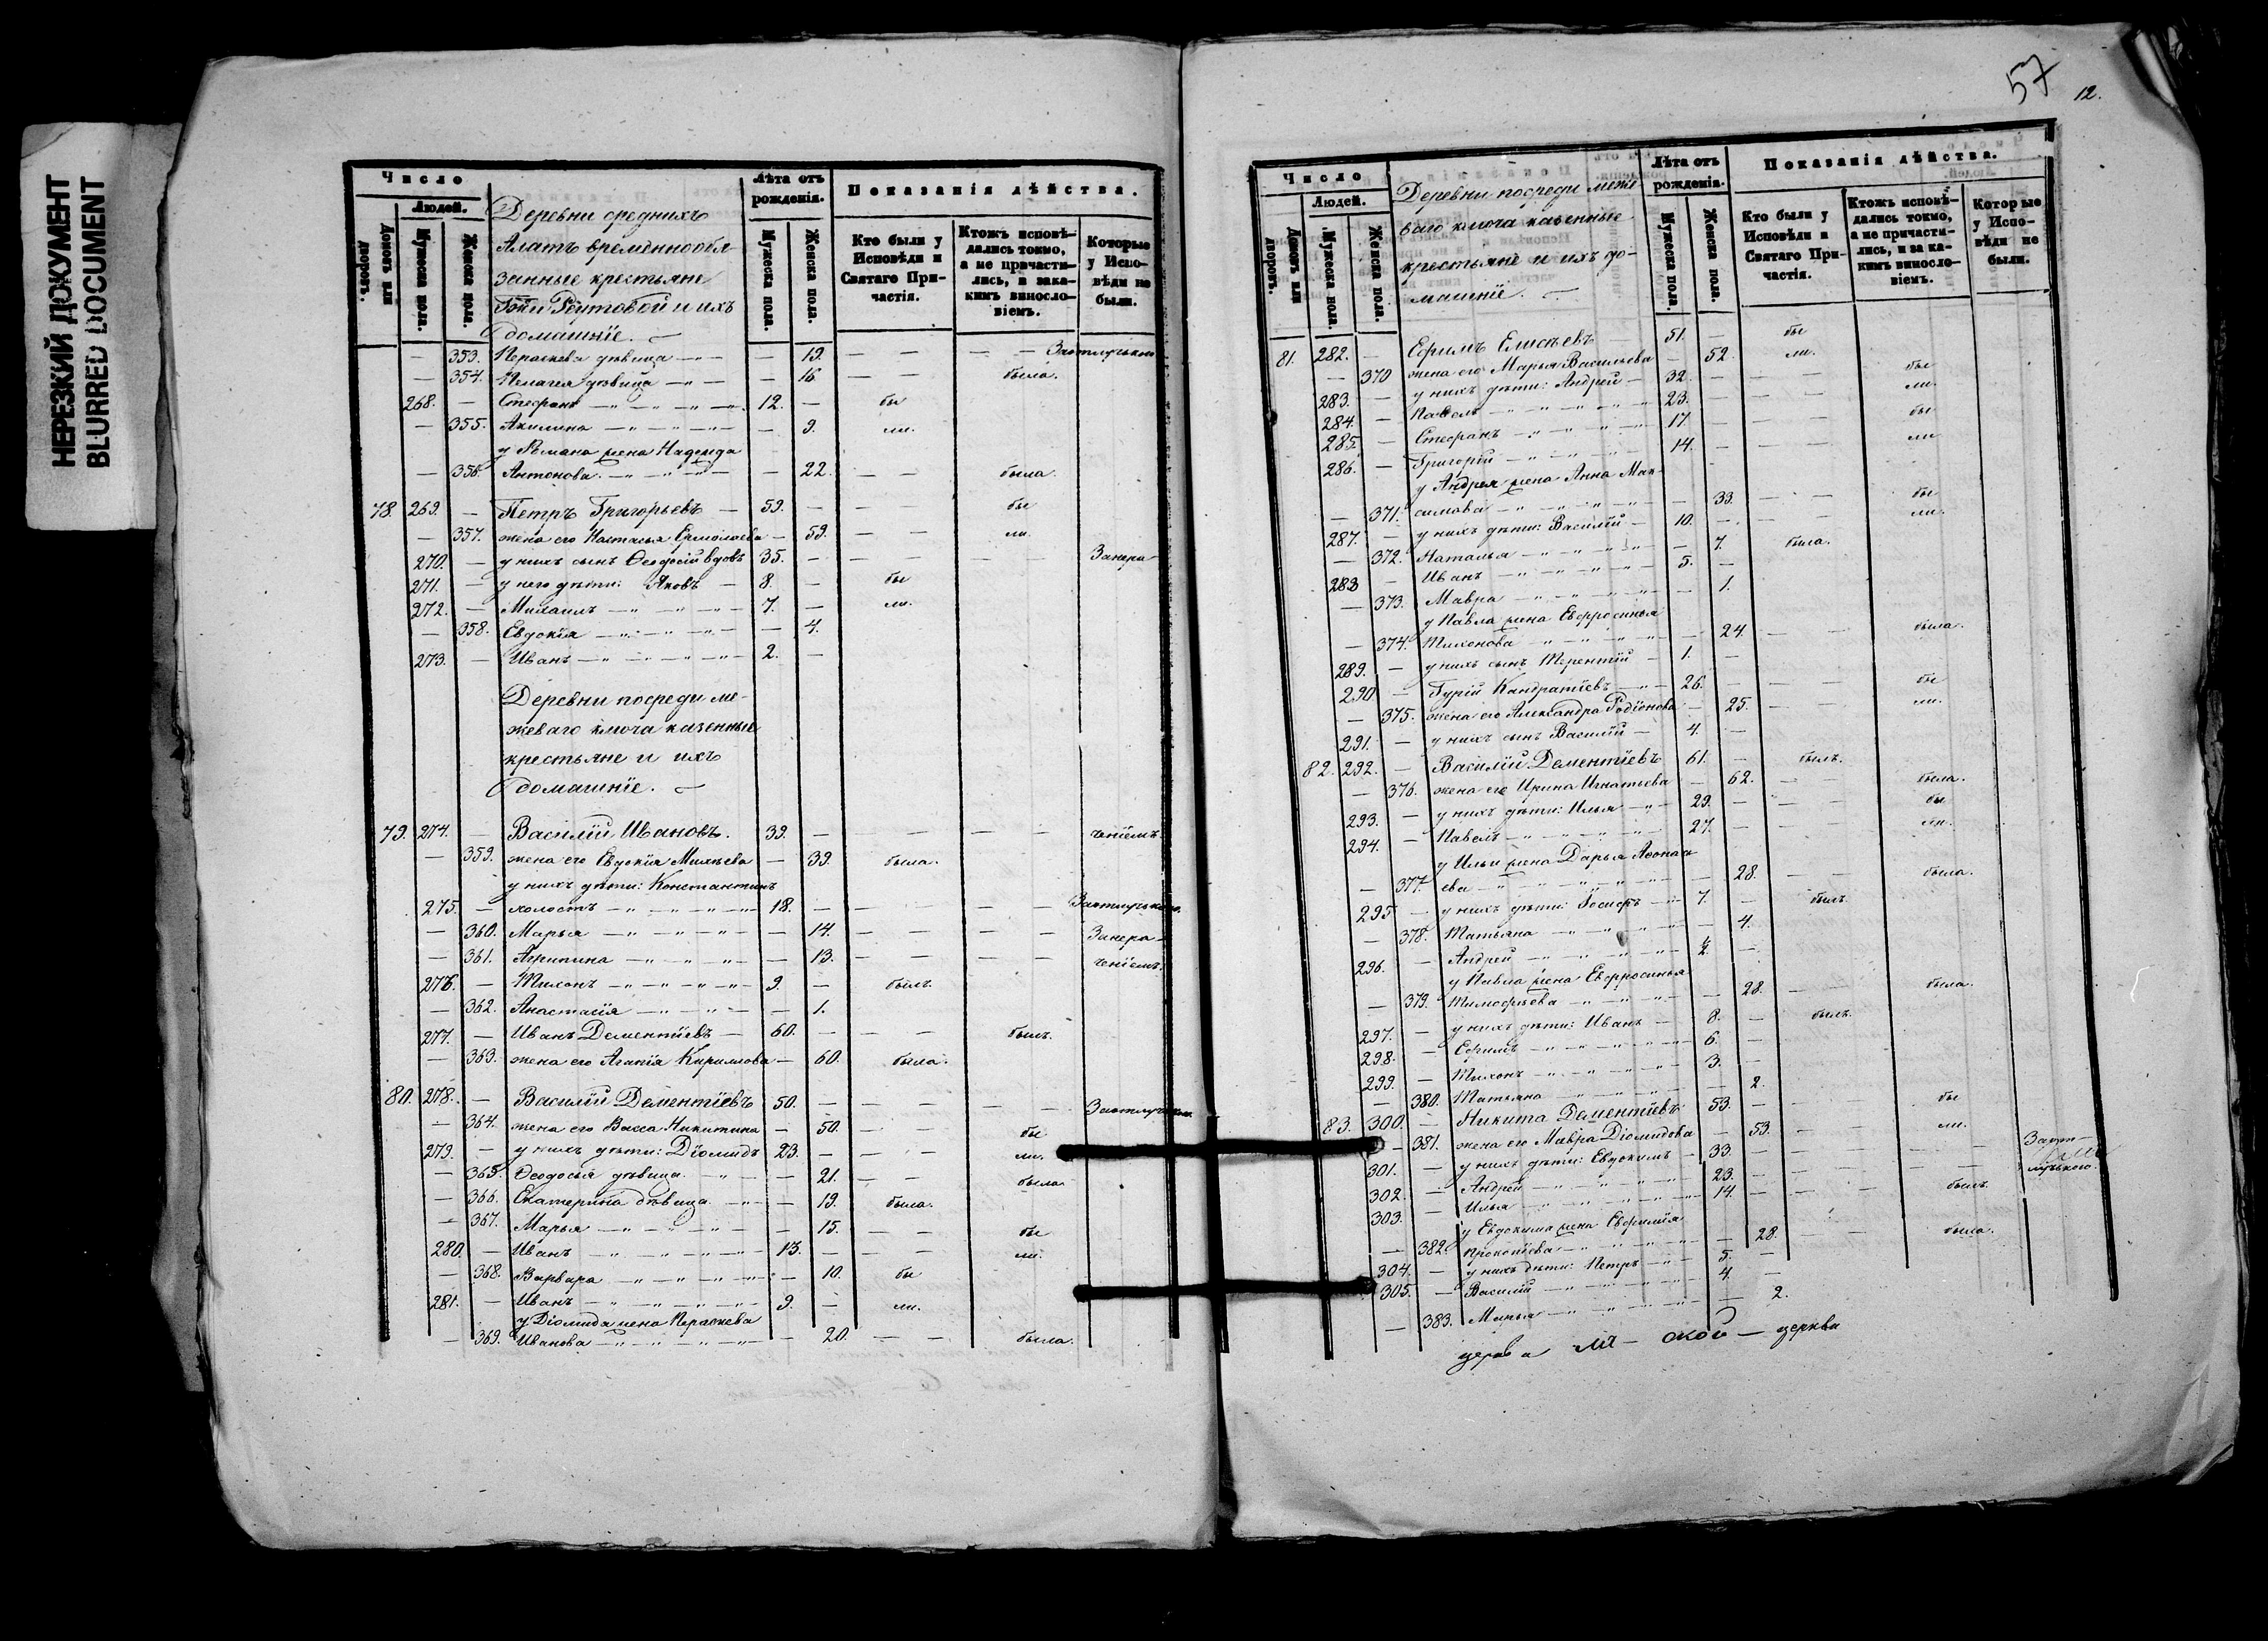 НЕРЕЗКИЙ ДОКУМЕНТ
BLURRED DOCUMENT
Число
Людей.
Домовъ или дворовъ.
Мужеска пола.
Женска пола.
Деревни среднихъ
Алатъ временнообя-
занные крестьяне
и ихъ
домашніе.
Лѣта отъ рожденія.
Мужеска пола.
Женска пола.
Показанія дѣйства.
Кто были у Исповѣди и Святаго При-частія.
Ктожъ исповѣ-дались токмо, а не причасти-лись, и зака-кимъ винословіемъ.
Которые у Испо-вѣди не были.
— 353. Параскева дѣвица — 19. — — — За отлучкою
— 354. Пелагея дѣвица — 16. — — была.
268. — Стефанъ 12. — бы
— 355. Акилина — 9. ли.
у Романа жена Надежда
— 356. Антонова — 22. — — была.
78. 269. — Петръ Григорьевъ — 59. — — — бы
— 357. жена его Настасья Ермолаева — 59. — — ли.
270. — у нихъ сынъ Ѳеодосій вдовъ 35. — — — — Занера-
271. — у него дѣти: Яковъ — 8. — бы
272. — Михаилъ 7. — ли.
— 358. Евдокія — 4.
273. — Иванъ 2. —
Деревни посреди ме-
жеваго ключа казенные
крестьяне и ихъ
домашніе.
79. 274. — Василій Ивановъ. 39. — — — — ченіемъ
— 359. жена его Евдокія Михѣева — 39. была.
у нихъ дѣти: Константинъ
275. — холостъ 18. — — — — За отлучкою.
— 360. Марья — 14. — — — — Занера-
— 361. Агрипина — 13. — — — — ченіемъ.
276. — Тихонъ 9. — былъ.
— 362. Анастасія — 1.
277. — Иванъ Дементіевъ — 60. — — — былъ.
— 363. жена его Агапія Кирилова — 60. была.
80. 278. — Василій Дементіевъ 50. — — — — За отлучкою.
— 364. жена его Васса Никитина — 50. — — бы
279. — у нихъ дѣти: Діомидъ 23. — — — ли.
— 365. Ѳеодосія дѣвица — 21. — — была
— 366. Екатерина дѣвица — 19. была.
— 367. Марья — 15. — — бы
280. — Иванъ 13. — — — ли.
— 368. Варвара — 10. бы
281. — Иванъ 9. — ли.
у Діомида жена Параскева
— 369. Иванова — 20. — — была.
57
12.
Число
Людей.
Домовъ или дворовъ.
Мужеска пола.
Женска пола.
Деревни посреди меже-
ваго ключа казенные
крестьяне и ихъ до-
машніе.
Лѣта отъ рожденія.
Мужеска пола.
Женска пола.
Показанія дѣйства.
Кто были у Исповѣди и Святаго При-частія.
Ктожъ исповѣ-дались токмо, а не причасти-лись, и за ка-кимъ виносло-віемъ.
Которые у Испо-вѣди не были.
81. 282. — Ефимъ Елисѣевъ 51. — бы
— 370 жена его Марья Васильева — 52. ли.
283. — у нихъ дѣти: Андрей — 32. — — — бы
284. — Павелъ 23. — — — ли.
285. — Стефанъ 17. — — — бы
286. — Григорій 14. — — — ли
у Андрея жена Анна Мак-
— 371. симова — 33. — — бы
287. — у нихъ дѣти: Василій — 10. — — — ли.
— 372. Наталья — 7. была.
288 — Иванъ 5. —
— 373. Мавра — 1.
у Павла жена Евфросинья
— 374. Тихонова — 24. — — была.
289. — у нихъ сынъ Терентій — 1. —
290 — Гурій Кандратіевъ 26. — — — бы
— 375. жена его Александра Родіонова — 25. — — ли.
291. — у нихъ сынъ Василій — 4. —
82. 292. — Василій Дементіевъ 61. — былъ.
— 376. жена его Ирина Игнатьева — 62. — — была.
293. — у нихъ дѣти: Илья 29. — — — бы
294. — Павелъ 27. — — — ли.
у Ильи жена Дарья Аѳонась
— 377. ева — 28. — — была.
295 — у нихъ дѣти: Іосифъ 7. — былъ.
— 378. Татьяна — 4.
296. — Андрей 2. —
у Павла жена Евфросинья
— 379. Тимофѣева — 28. — была.
297. — у нихъ дѣти: Иванъ — 8. — былъ.
298. — Ефимъ 6. —
299. — Тихонъ 3. —
— 380. Татьяна — 2.
83. 300. — Никита Дементіевъ 53. — — — бы
— 381. жена его Мавра Діомидова — 53. — — ли.
301. — у нихъ дѣти: Евдокимъ — 33. — — — — За от-
302. — Андрей 23. — — — — лучкою.
303. — Илья 14. — — — былъ
у Евдокима жена Евфимія
— 382. Прокопіева — 28. — — была.
304. — у нихъ дѣти: Петръ 5. —
305. — Василій 4. —
— 383. Марья — 2.
церкви